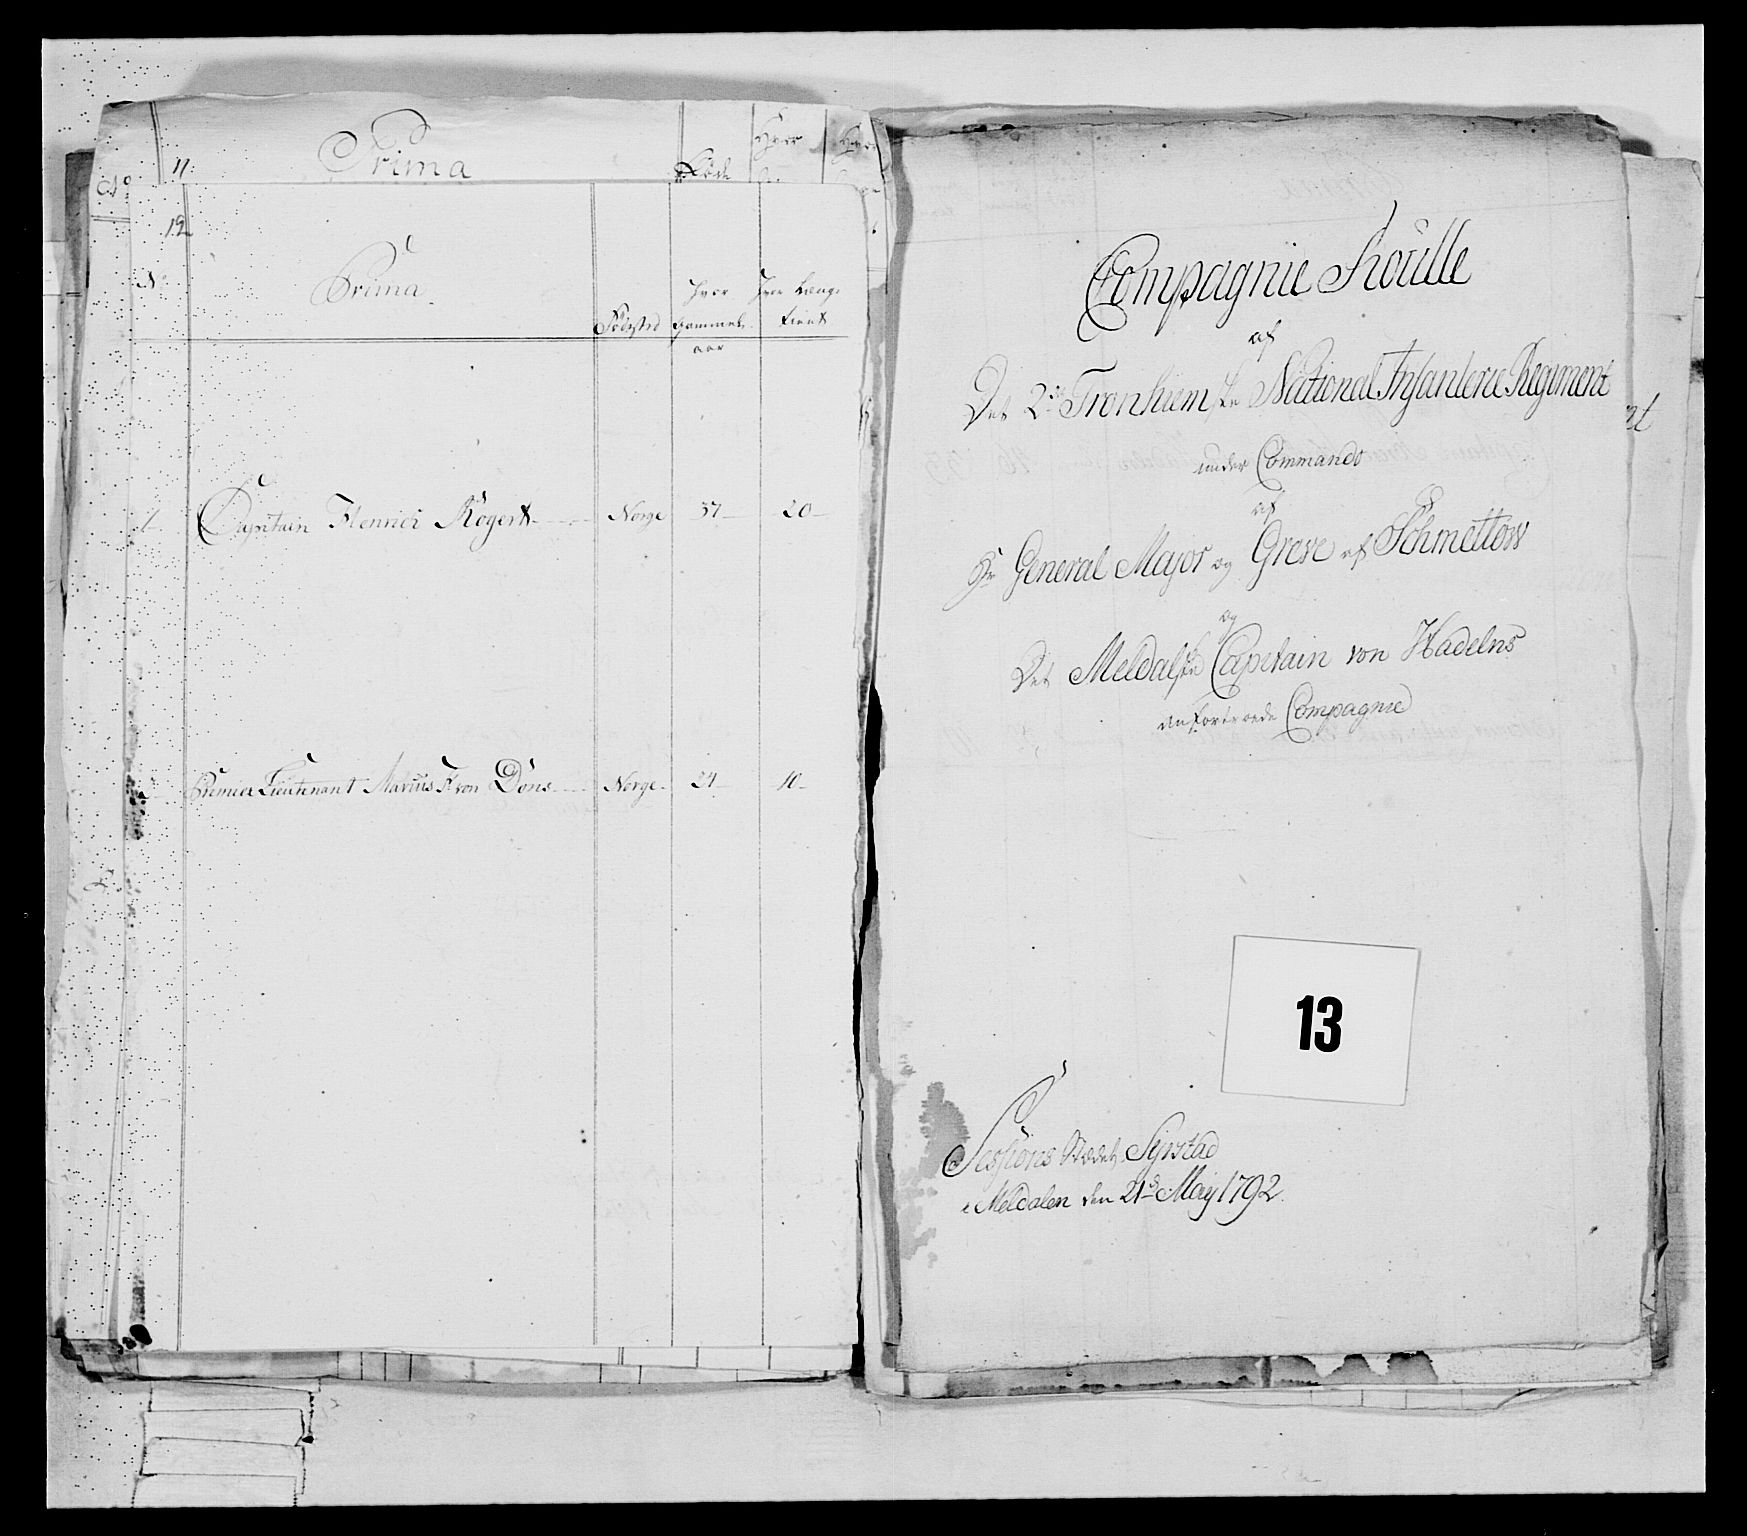 11
Prima
Føde
Hvor
Hvor
No
12
No
Prima
Fødested
Hvor
Gammel
aar
Hvor Længe
tient
1
Capitain Henrici Røgert
Norge
37
20
Premier Lieutenant Marius F von Döns
Norge
24
10
Compagnie Roulle
af
Det 2de Tronhiemske National Infanterie Regiment
under Commando
af
Hr General Major og Greve af Schmettow
og
Det Meldalske Capitain von Hadelns
anfortroede Compagnie
13
Sessions Stædet Syrstad
i Meldalen den 21de May 1792.